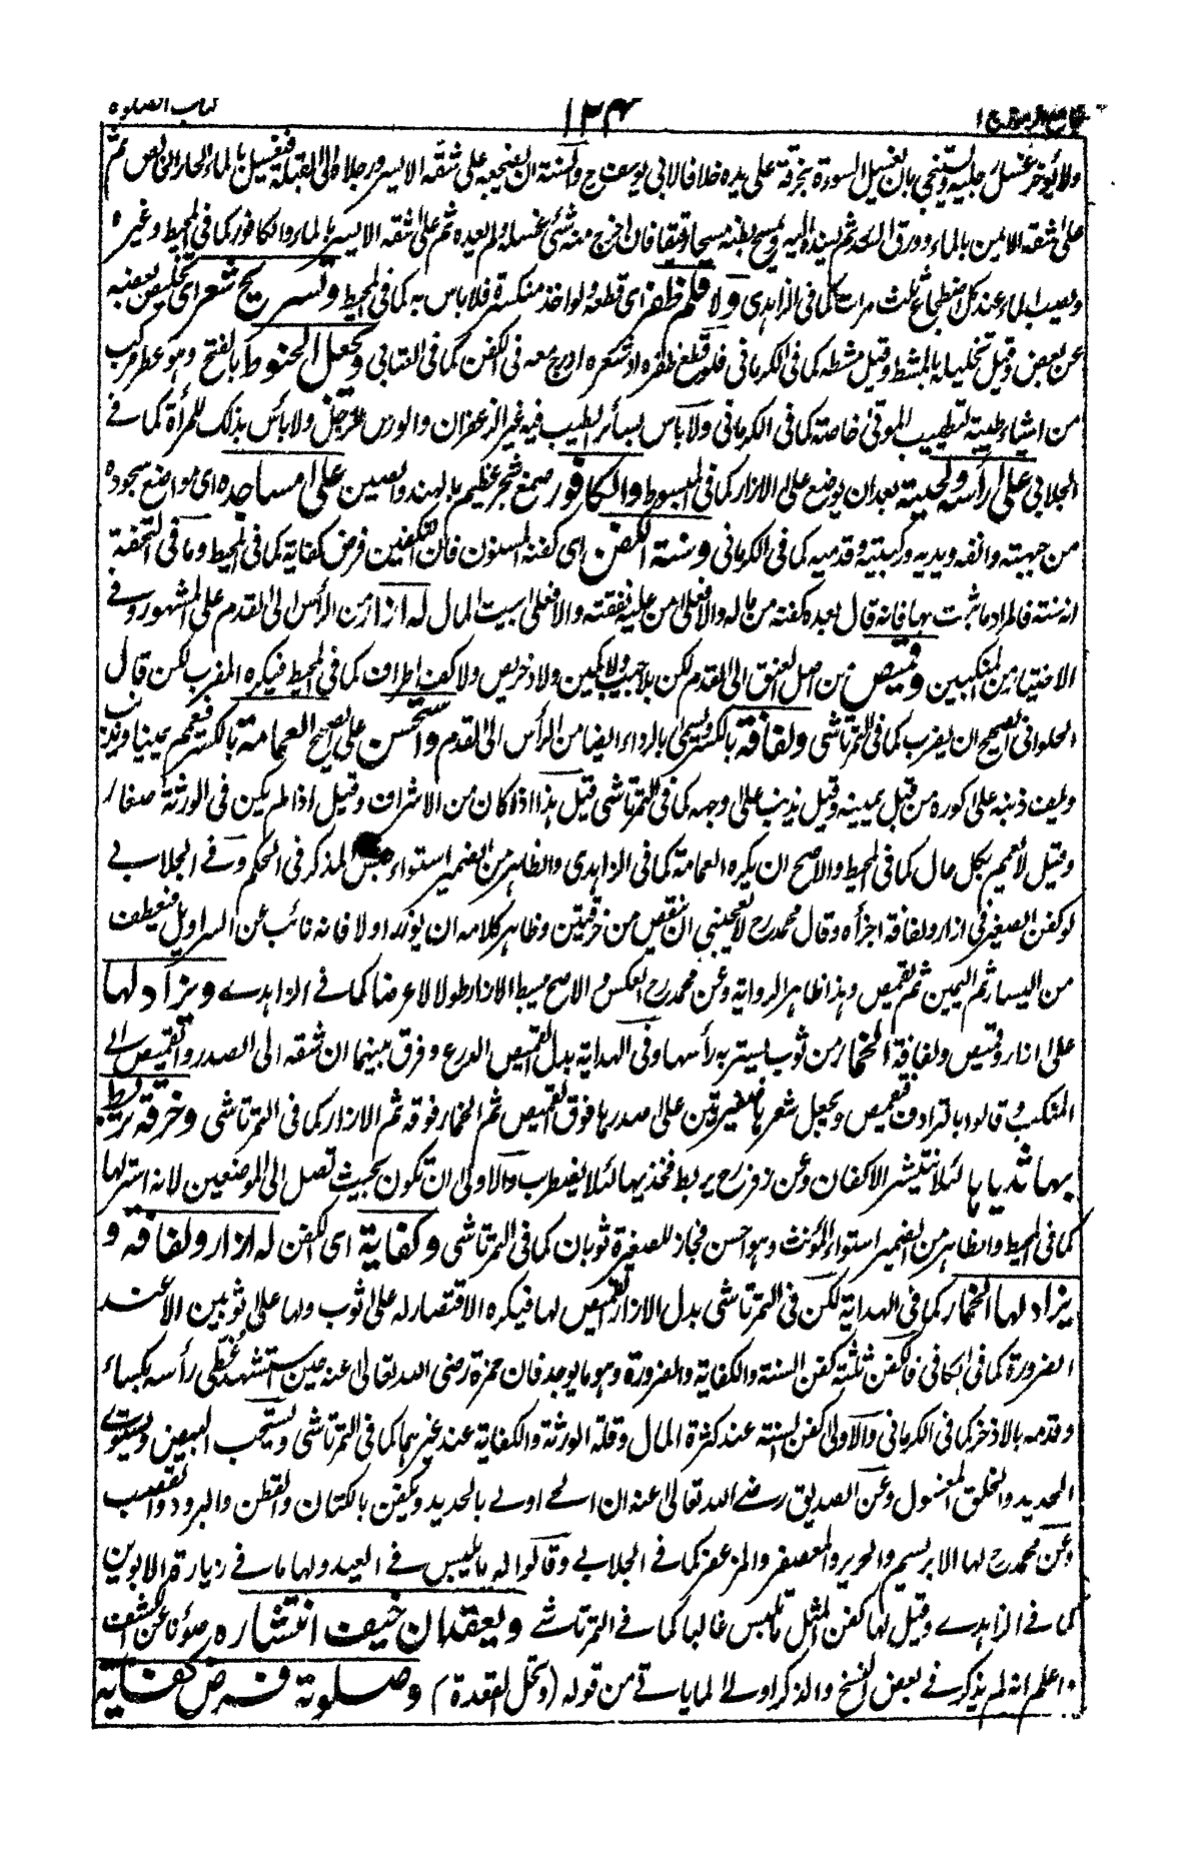 جامع الرموز ج ١ ١٢٤ كتاب الصلوة
ولا يؤخر غسل رجليه ويستنجى بان يغسل السوءة بخرقة على يده خلافا لابى يوسف رح والسنة ان يضجعه على شقه الايسر ورجلاه الى القبلة فيغسل بالماء الحار ان يبس ثم
على شقه الايمن بالماء وورق السدر ثم يسنده اليه ويمسح بطنه مسحا رقيقا فان خرج منه شئ غسله ولم يعده ثم على شقه الايسر بالماء والكافور كما فى المحيط وغيره
ويصيب الماء عند كل اضطجاع ثلث مرات كما فى الزاهدى ولا قلم ظفر اى قطعه ولو اخذ منكسرة فلا باس به كما فى المحيط وتسريح شعر اى تخليص بعضه
عن بعض وقيل تخليله بالمشط وقيل مشطه كما فى الكرمانى فلو قطع ظفره او شعره ادرج معه فى الكفن كما فى العتابى وتجعل الحنوط بالفتح وهو عطر مركب
من اشياء طيبة لتطييب الموتى خاصة كما فى الكرمانى ولا باس بسائر الطيب فيه غير الزعفران والورس للرجل ولا باس بذلك للمرأة كما فى
الجلابى على رأسه ولحيته بعد ان يوضع على الازار كما فى المبسوط والكافور صمغ شجر عظيم بالهند والصين على مساجده اى مواضع سجوده
من جبهته وانفه ويديه وركبتيه وقدميه كما فى الكرمانى وسنة الكفن اى كفنه المسنون فان التكفين فرض كفاية كما فى المحيط وما فى التحفة
انه سنة فالمراد ما ثبت بها فانه قال بعده كفنه من ماله والا فعلى من عليه نفقته والا فعلى بيت المال له ازار من الرأس الى القدم على المشهور وفى
الاختيار من المنكبين وقميص من اصل العنق الى القدم لكن بلا جيب ولا كمين ولا دخريص ولا كف اطراف كما فى المحيط فيكره المضرب لكن قال
الحلوانى الصحيح ان يضرب كما فى التمرتاشى ولفافة بالكسر ويسمى بالرداء ايضا من الرأس الى القدم واستحسن على الصحيح العمامة بالكسر فيعمم يمينا ويذنب
ويلف ذنبه على كوره من قبل يمينه وقيل يذنب على وجهه كما فى التمرتاشى قيل هذا اذا كان من الاشراف وقيل اذا لم يكن فى الورثة صغار
وقيل لا يعمم بكل حال كما فى المحيط والاصح ان يكره العمامة كما فى الزاهدى والظاهر من الضمير استواء جنس المذكر فى الحكم وفى الجلابى
لو كفن الصغير فى ازار ولفافة اجزأه وقال محمد رح لا يعجبنى ان ينقص من خرقتين وظاهر كلامه ان يؤزر اولا فانه نائب عن السراويل فيعطف
من اليسار ثم اليمين ثم يقمص وهذا ظاهر الرواية وعن محمد رح العكس والاصح يبسط الازار طولا لا عرضا كما فى الزاهدى ويزاد لها
على ازار وقميص ولفافة الخمار من ثوب يستر به رأسها وفى الهداية بدل القميص الدرع وفرق بينهما ان شقه الى الصدر والقميص الى
المنكب وقالوا بالترادف فيقمص ويجعل شعرها ضفيرتين على صدرها فوق القميص ثم الخمار فوقه ثم الازار كما فى التمرتاشى وخرقة تربط
بها ثدياها لئلا تنتشر الاكفان وعن زفر رح يربط فخذيها لئلا يضطرب والاولى ان تكون بحيث تصل الى الموضعين لانه استر لها
كما فى المحيط والظاهر من الضمير استواء المؤنث وهو احسن فجاز للصغيرة ثوبان كما فى التمرتاشى وكفاية اى الكفن له ازار ولفافة و
يزاد لها الخمار كما فى الهداية لكن فى التمرتاشى بدل الازار القميص لها فيكره الاقتصار له على ثوب ولها على ثوبين الا عند
الضرورة كما فى الكافى فالكفن ثلثة كفن السنة والكفاية والضرورة وهو ما يوجد فان حمزة رضى الله تعالى عنه حين استشهد غطى رأسه بكساء
وقدمه بالاذخر كما فى الكرمانى والاولى كفن السنة عند كثرة المال وقلة الورثة والكفاية عند غيرهما كما فى التمرتاشى ويستحب البيض ويستوى
الجديد والخلق المغسول وعن الصديق رضى الله تعالى عنه ان الحى اولى بالجديد ويكفن بالكتان والقطن والبرود والقصب
وعن محمد رح لها الابريسم والحرير والمعصفر والمزعفر كما فى الجلابى وقالوا له ما يلبس فى العيد ولها ما فى زيارة الابوين
كما فى الزاهدى وقيل لها كفن المثل ما تلبس غالبا كما فى التمرتاشى ويعقد ان خيف انتشاره صونا عن الكشف
واعلم انه لم يذكر فى بعض النسخ والذكر اولى لما ياتى من قوله (وتحل العقدة) وصلوته فرض كفاية